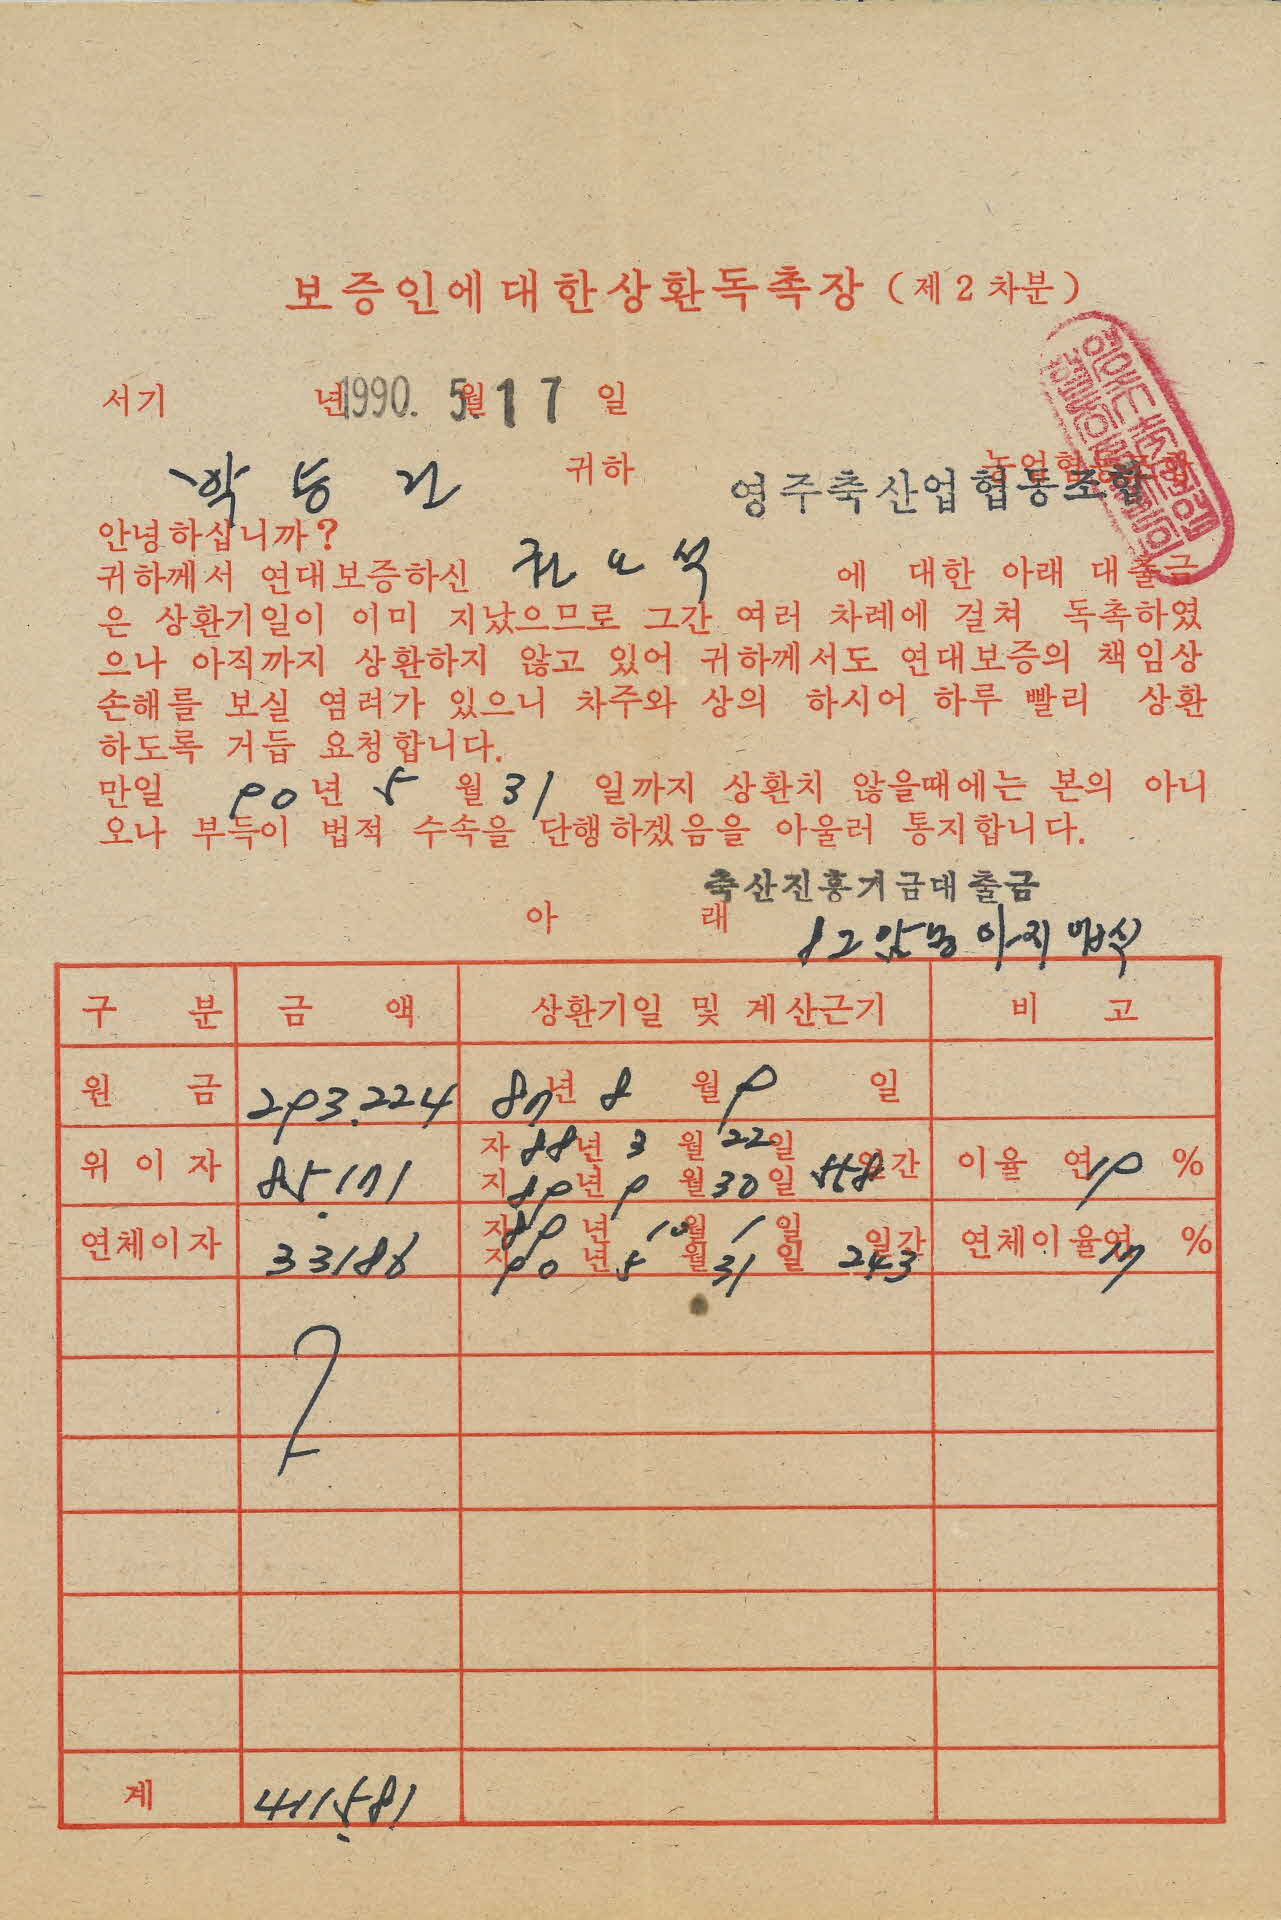 보증인에대한상환독촉장 (제2차분)
서기 년 1990. 5. 월 17 일
박동진 귀하
영주축산업협동조합
안녕하십니까?
귀하께서 연대보증하신 권오석 에 대한 아래 대출금
은 상환기일이 이미 지났으므로 그간 여러 차례에 걸쳐 독촉하였
으나 아직까지 상환하지 않고 있어 귀하께서도 연대보증의 책임상
손해를 보실 염려가 있으니 차주와 상의 하시어 하루 빨리 상환
하도록 거듭 요청합니다.
만일 90년 5월 31일까지 상환치 않을때에는 본의 아니
오나 부득이 법적 수속을 단행하겠음을 아울러 통지합니다.
축산진흥기금대출금
아 래
구 분 금 액 상환기일 및 계산근기 비 고
원 금 293.224 87년 8월 9일
위 이 자 85.171 자 88년 3월 22일 이율 연 19 %
지 89년 9월 30일 558 일간
연체이자 33186 자 89년 10월 1일 연체이율연 17 %
지 90년 5월 31일 243 일간
계 411,581